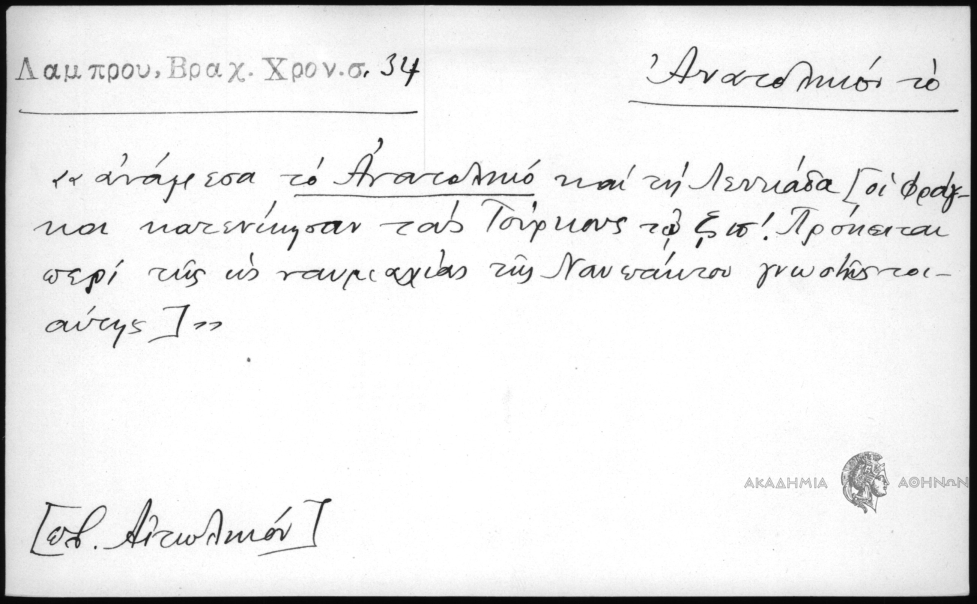 Λαμπρου, Βραχ. Χρον. σ. 34
Ἀνατολικόν τὸ
«ἀνάμεσα τὸ Ἀνατολικό καὶ τὴ Λευκάδα [οἱ Φράγ-
κοι κατενίκησαν τοὺς Τούρκους τῷ Πρόκειται
περί τῆς ὡς ναυμαχίας τῆς Ναυπάκτου γνωστῆς τοι-
αύτης]»
[πβ. Αἰτωλικόν]
ΑΚΑΔΗΜΙΑ ΑΘΗΝΩΝ